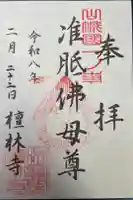 奉拝
准胝佛母尊
令和八年
二月二十二日
檀林寺